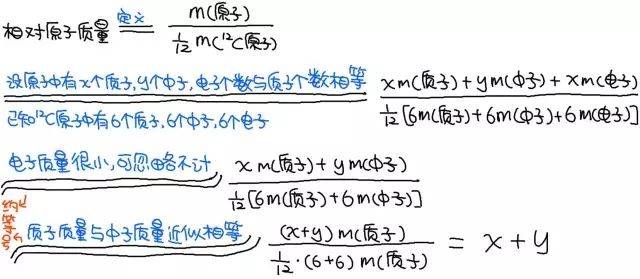 相对原子质量 定义 m(原子) / 1/12 m(¹²C原子)
设原子中有x个质子,y个中子,电子个数与质子个数相等 x m(质子) + y m(中子) + x m(电子) / 1/12 [6m(质子) + 6m(中子) + 6m(电子)]
已知¹²C原子中有6个质子,6个中子,6个电子
电子质量很小,可忽略不计 x m(质子) + y m(中子) / 1/12 [6m(质子) + 6m(中子)]
约等号
质子质量与中子质量近似相等 (x+y) m(质子) / 1/12 · (6+6) m(质子) = x + y